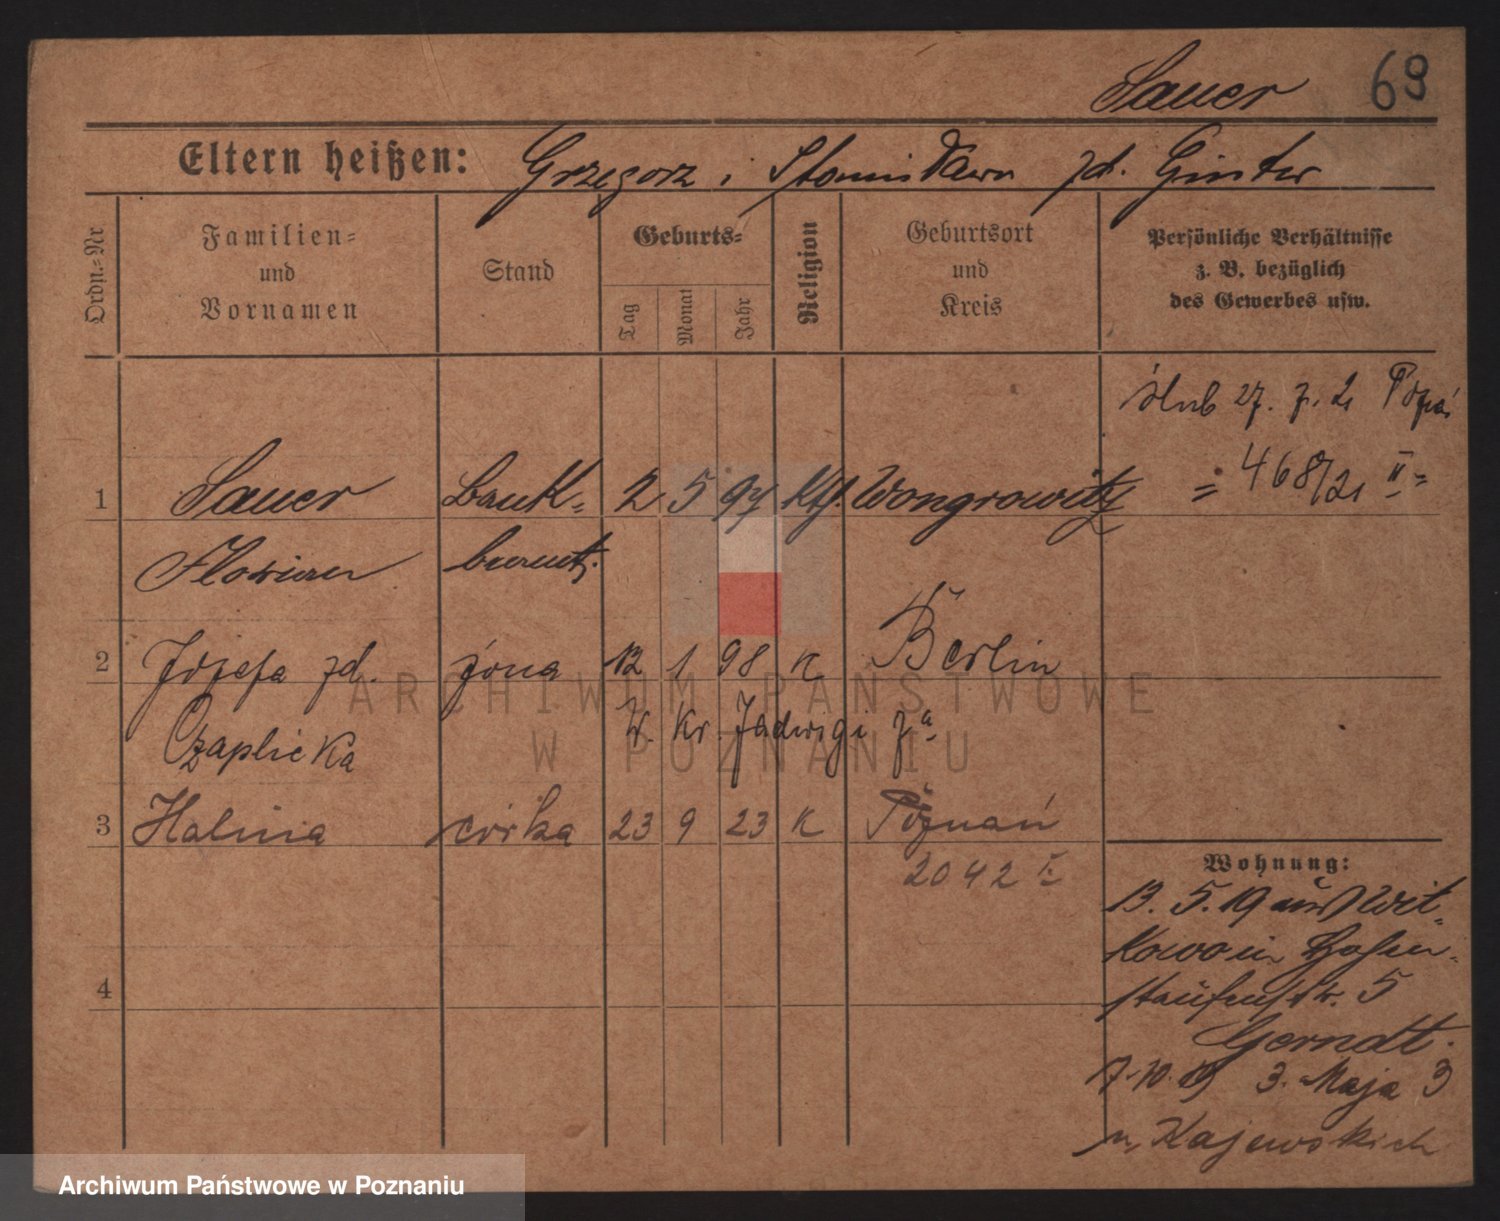 Sauer 69
Eltern heißen: Grzegorz i Stanisława zd. Ginter
Ordn.-Nr
Familien-
und
Vornamen
Stand
Geburts-
Tag
Monat
Jahr
Religion
Geburtsort
und
Kreis
Persönliche Verhältnisse
z. B. bezüglich
des Gewerbes usw.
ślub 27. 7. 21 Poznań
= 468/21 II =
1 Sauer Bank- 2 5 97 Kth. Wongrowitz
Florian beamt.
2 Józefa zd. żona 12 1 98 K Berlin
Czaplicka Kr. Jadwigi 7ª
3 Halina córka 23 9 23 K Poznań
2042 I
4
Wohnung:
13. 5. 19 aus Wit-
kowo in Hohen-
staufenstr. 5
Gerndt.
7. 10. 19 3. Maja 3
u. Kajewskich
ARCHIWUM PAŃSTWOWE
W POZNANIU
Archiwum Państwowe w Poznaniu